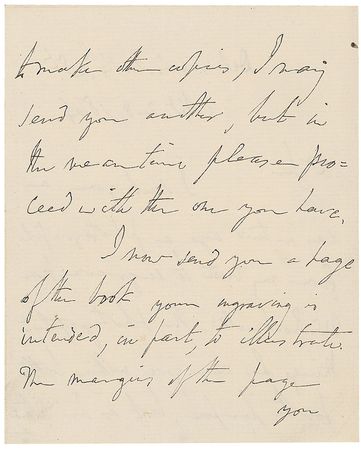 to make other copies, I may
send you another, but in
the meantime please pro=
ceed with the one you have.
I now send you a page
of the book your engraving is
intended, in part, to illustrate.
The margins of the page
you